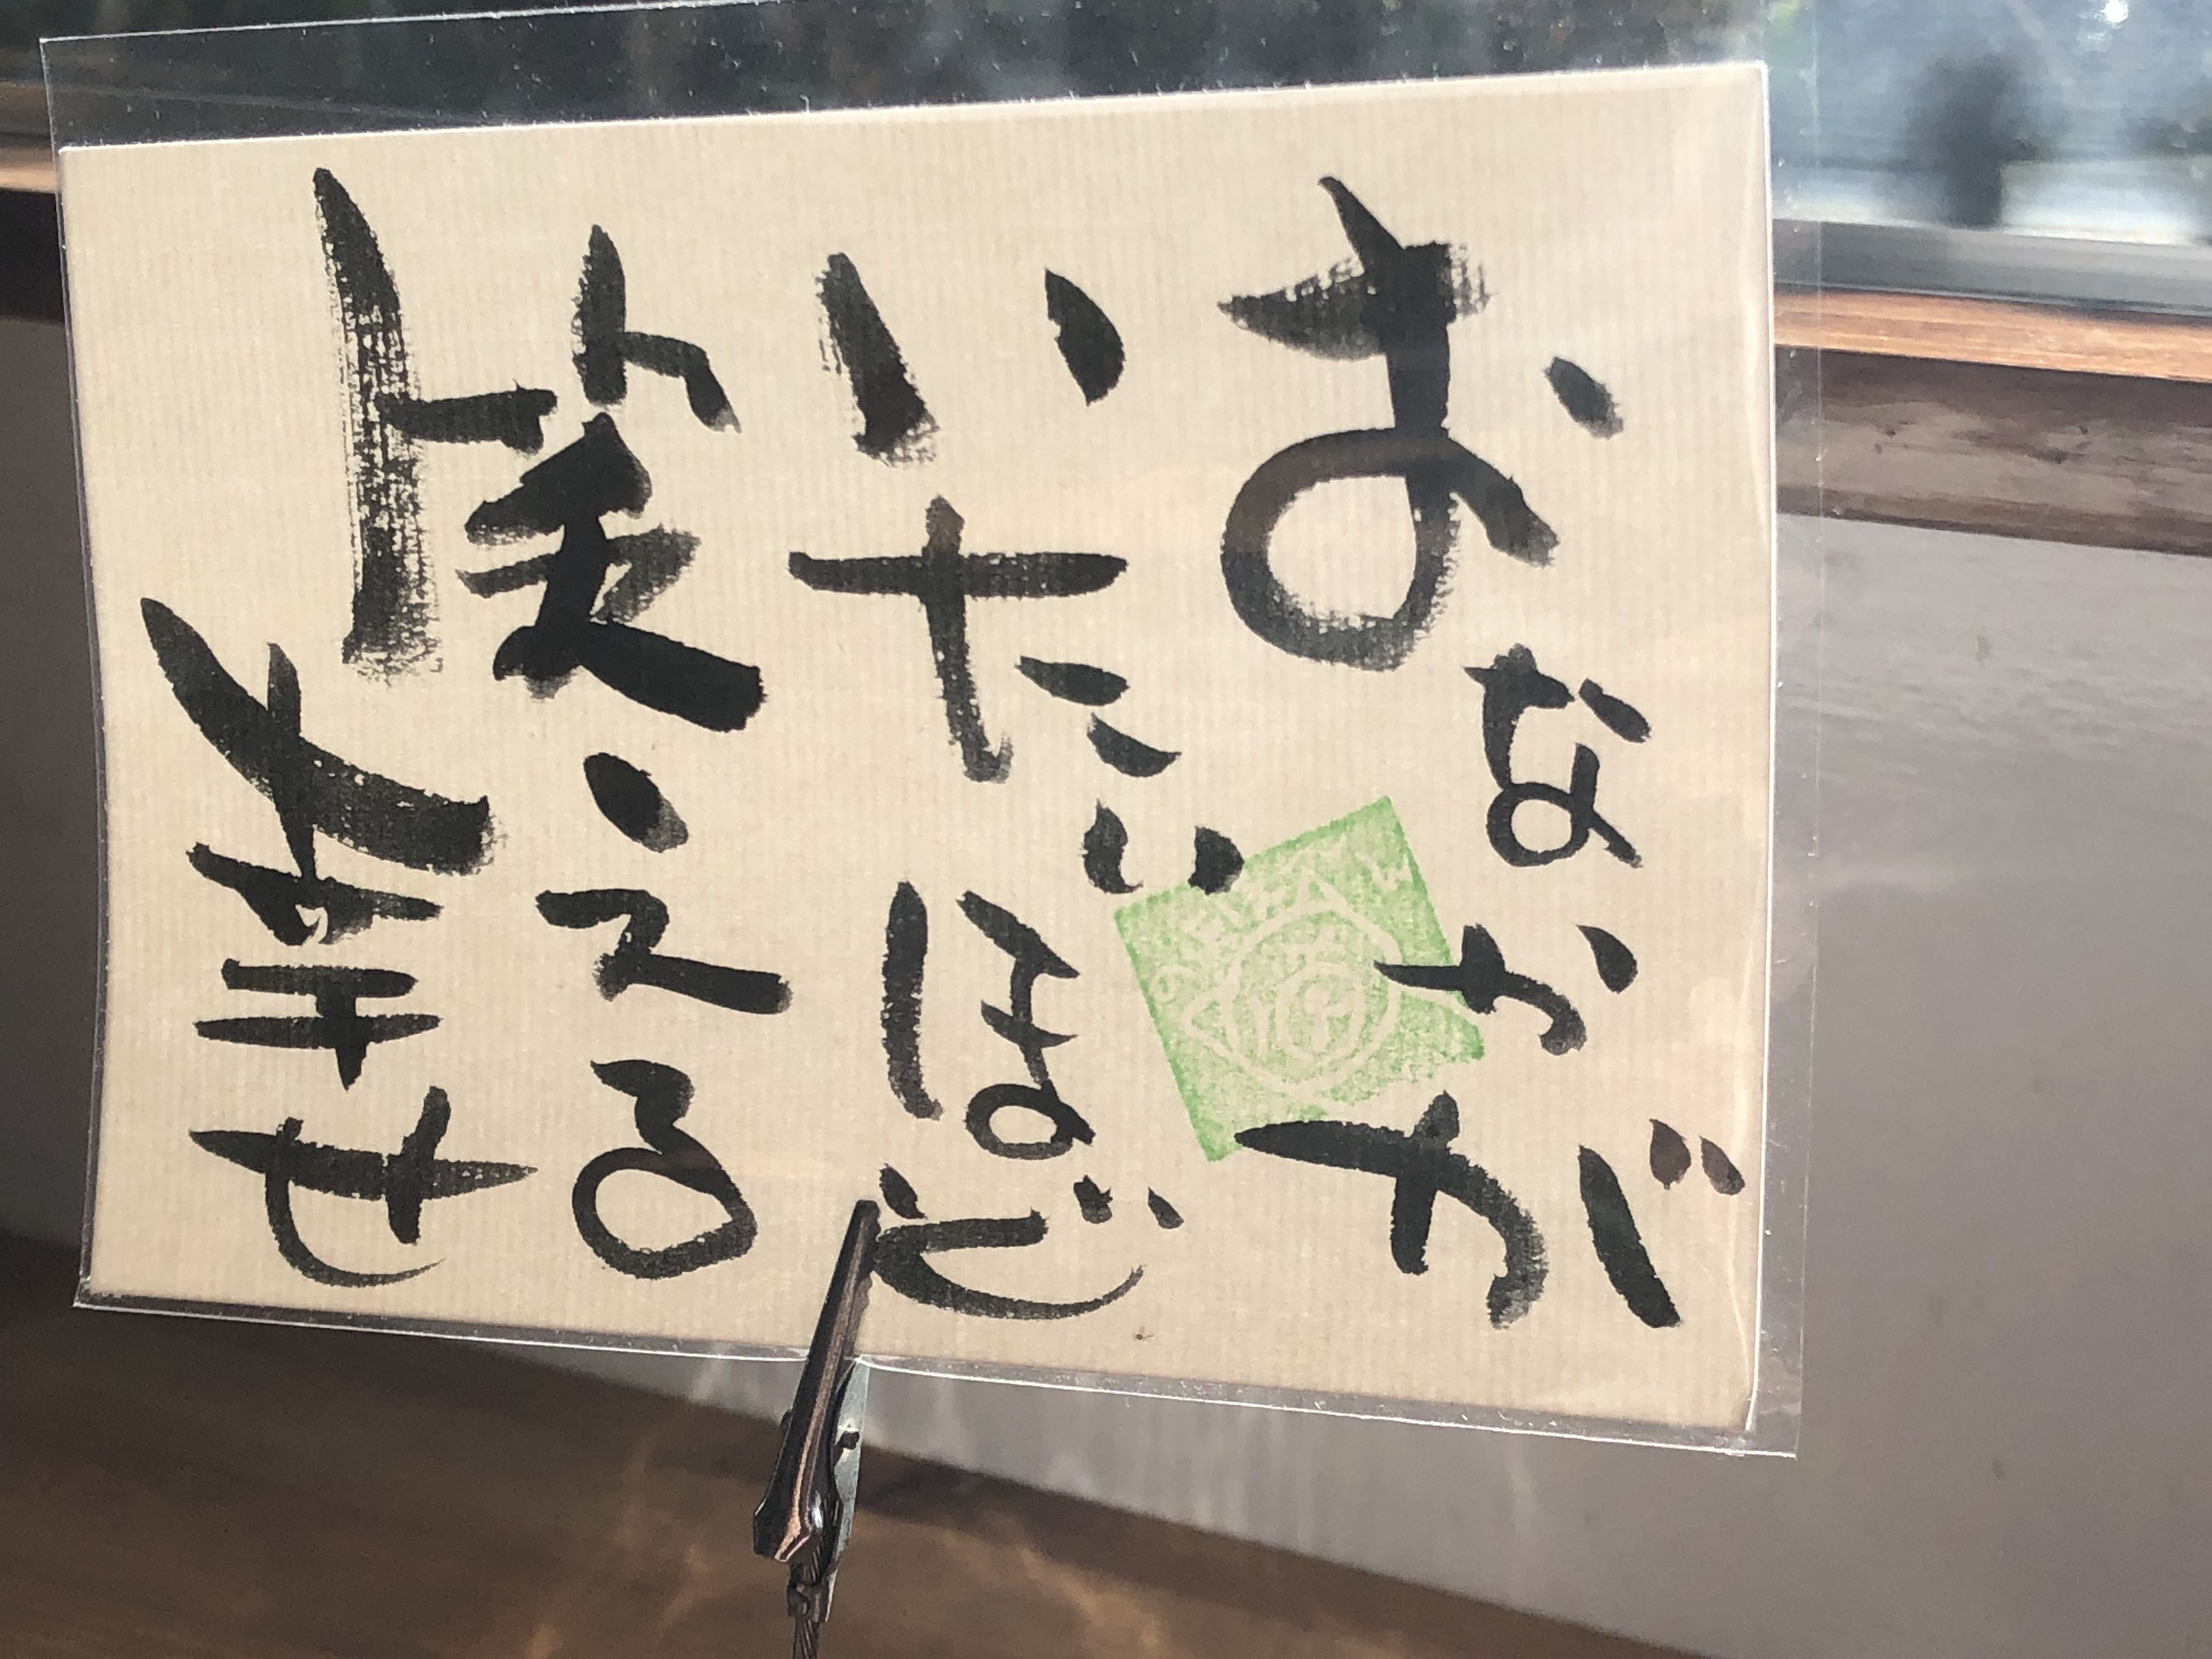 おなかが
いたいほど
笑える
幸せ